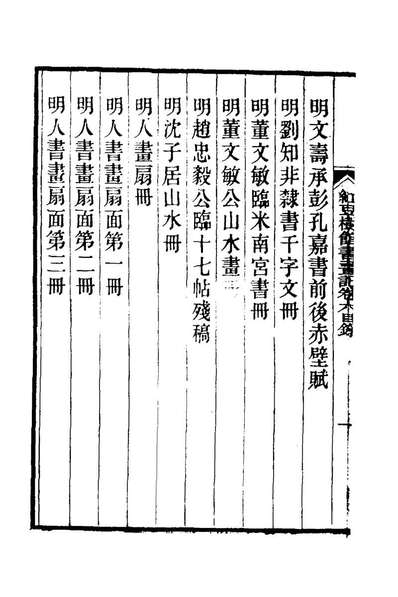 紅豆樹館書畫記卷六目錄
明文壽承彭孔嘉書前後赤壁賦
明劉知非隸書千字文冊
明董文敏臨米南宮書冊
明董文敏公山水畫
明趙忠毅公臨十七帖殘稿
明沈子居山水冊
明人畫扇冊
明人書畫扇面第一冊
明人書畫扇面第二冊
明人書畫扇面第三冊